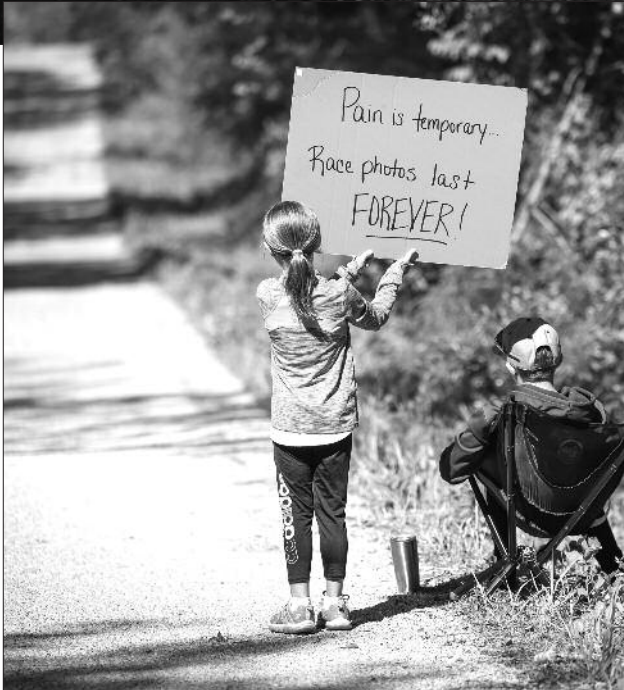 Pain is temporary...
Race photos last
FOREVER!